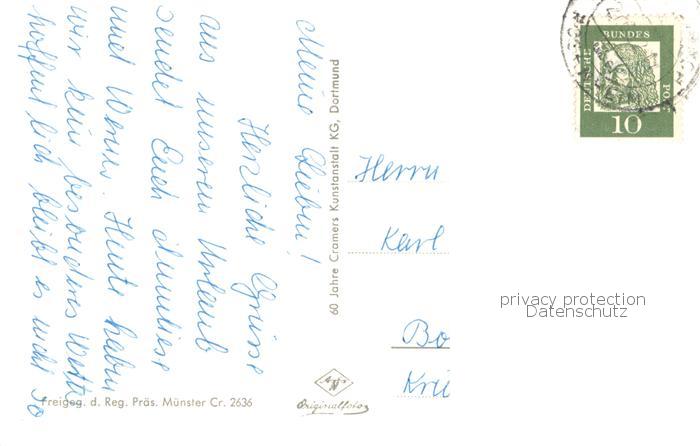 Meine Lieben!
Herzliche Grüsse
aus unserem Urlaub
sendet Euch
und Werner. Heute haben
wir kein besonderes Wetter
hoffentlich bleibt es nicht so
60 Jahre Cramers Kunstanstalt KG, Dortmund
Freigeg. d. Reg. Präs. Münster Cr. 2636
Originalfoto
Herrn
Karl
Bo
DEUTSCHE
BUNDES
POST
10
privacy protection
Datenschutz